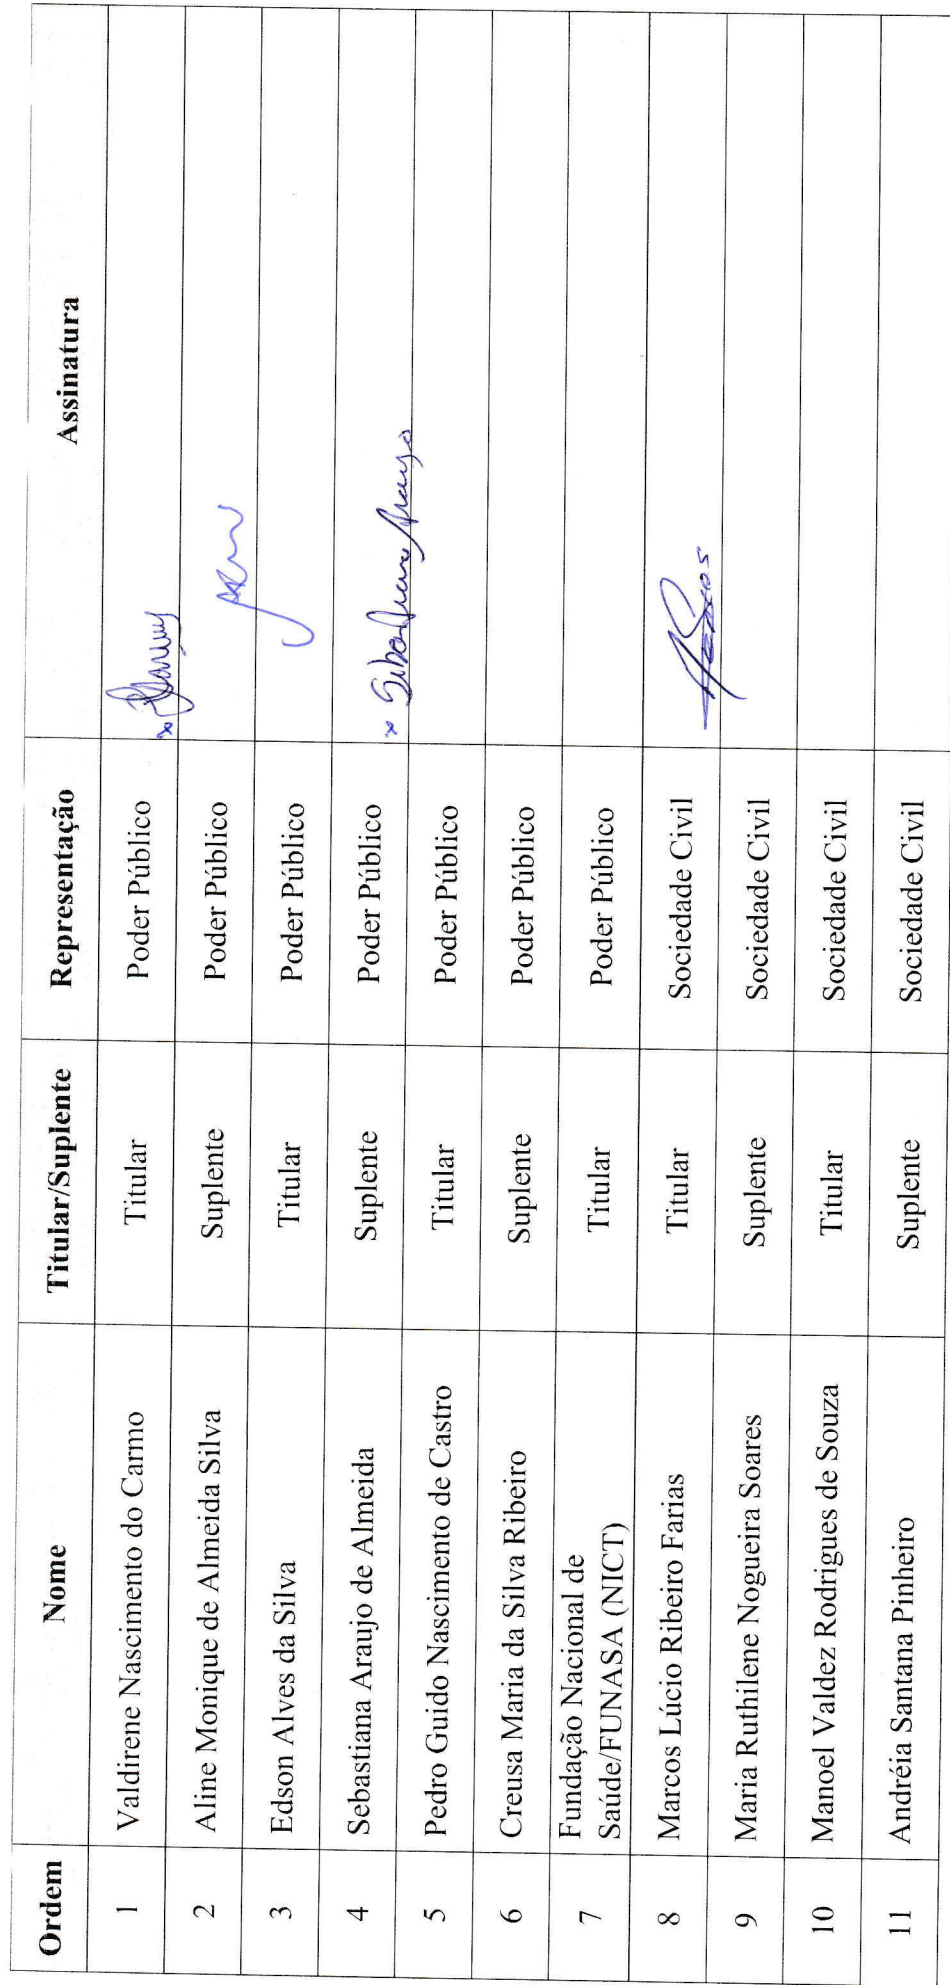 Ordem Nome Titular/Suplente Representação Assinatura
1 Valdirene Nascimento do Carmo Titular Poder Público x
2 Aline Monique de Almeida Silva Suplente Poder Público
3 Edson Alves da Silva Titular Poder Público
4 Sebastiana Araujo de Almeida Suplente Poder Público x Araujo
5 Pedro Guido Nascimento de Castro Titular Poder Público
6 Creusa Maria da Silva Ribeiro Suplente Poder Público
7 Fundação Nacional de
Saúde/FUNASA (NICT) Titular Poder Público
8 Marcos Lúcio Ribeiro Farias Titular Sociedade Civil
9 Maria Ruthilene Nogueira Soares Suplente Sociedade Civil
10 Manoel Valdez Rodrigues de Souza Titular Sociedade Civil
11 Andréia Santana Pinheiro Suplente Sociedade Civil